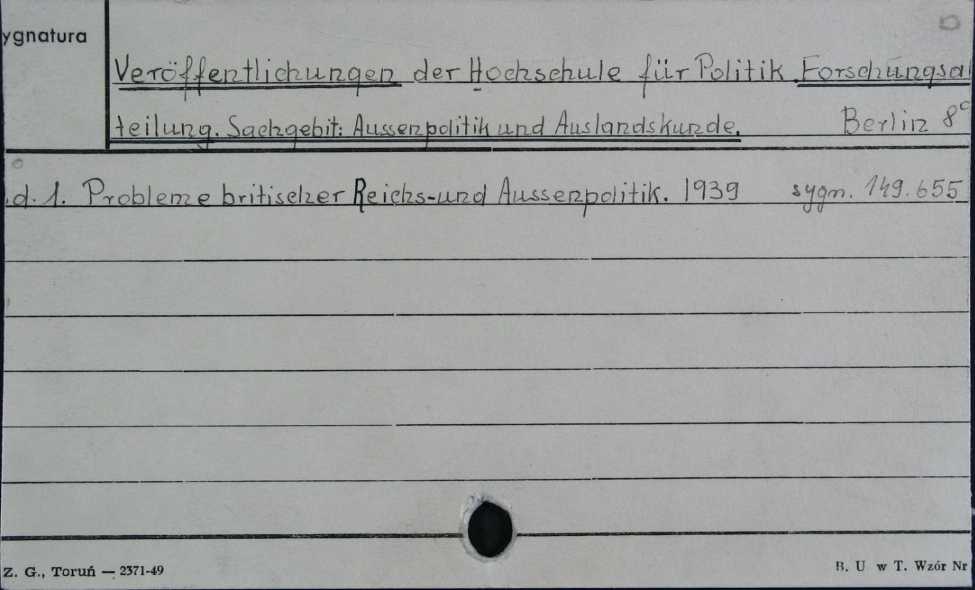 ygnatura
Veröffentlichungen der Hochschule für Politik. Forschungsa
teilung. Sachgebit: Aussenpolitik und Auslandskunde. Berlin 8°
.d. 1. Probleme britischer Reichs-und Aussenpolitik. 1939 sygn. 149.655
Z. G., Toruń — 2371-49
B. U w T. Wzór Nr